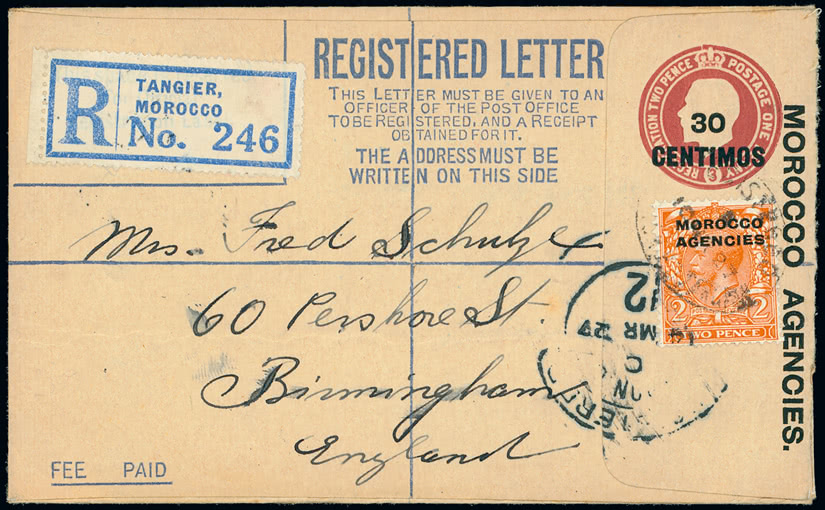 R
TANGIER,
MOROCCO
No. 246
REGISTERED LETTER
THIS LETTER MUST BE GIVEN TO AN
OFFICER OF THE POST OFFICE
TO BE REGISTERED, AND A RECEIPT
OBTAINED FOR IT.
THE ADDRESS MUST BE
WRITTEN ON THIS SIDE
REGISTRATION TWO PENCE POSTAGE ONE PENNY
3
30
CENTIMOS
MOROCCO AGENCIES.
MOROCCO
AGENCIES
2 2
TWO PENCE
12
MR 27
Mrs. Fred Schulze
60 Pershore St.
Birmingham
England
FEE PAID